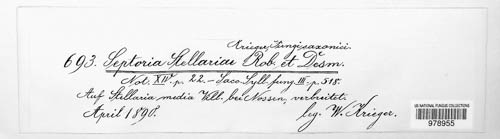 Krieger, Fungi saxonici.
693. Septoria Stellariae Rob. et Desm.
Not. XIV. p. 22. – Sacc. Syll. fung. III. p. 518.
Auf Stellaria media Vill. bei Nossen, verbreitet.
April 1890. leg. W. Krieger.
US NATIONAL FUNGUS COLLECTIONS
978955